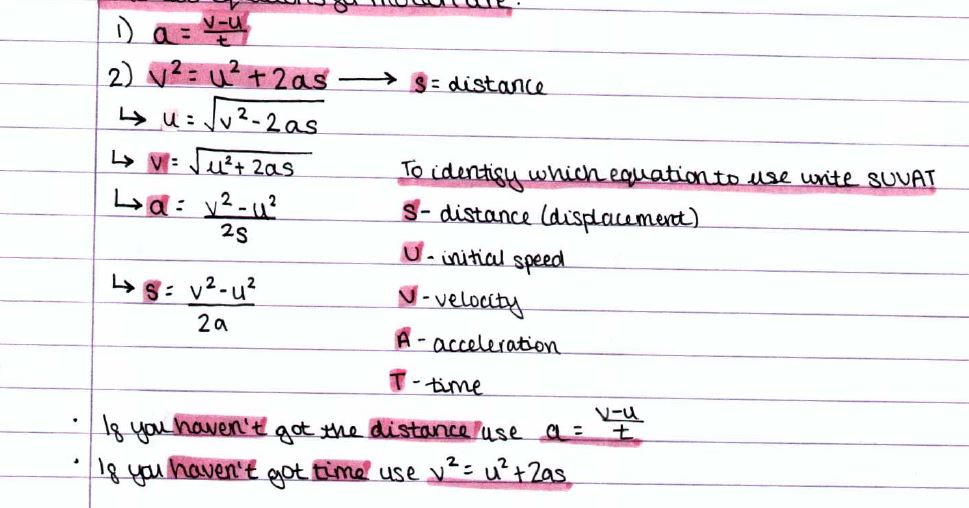 equations for motion are:
1) a = v-u/t
2) v² = u² + 2as → s = distance
↳ u = √v² - 2as
↳ v = √u² + 2as
↳ a = v² - u²/2s
↳ s = v² - u²/2a
To identify which equation to use write SUVAT
S - distance (displacement)
U - initial speed
V - velocity
A - acceleration
T - time
· If you haven't got the distance use a = v-u/t
· If you haven't got time use v² = u² + 2as